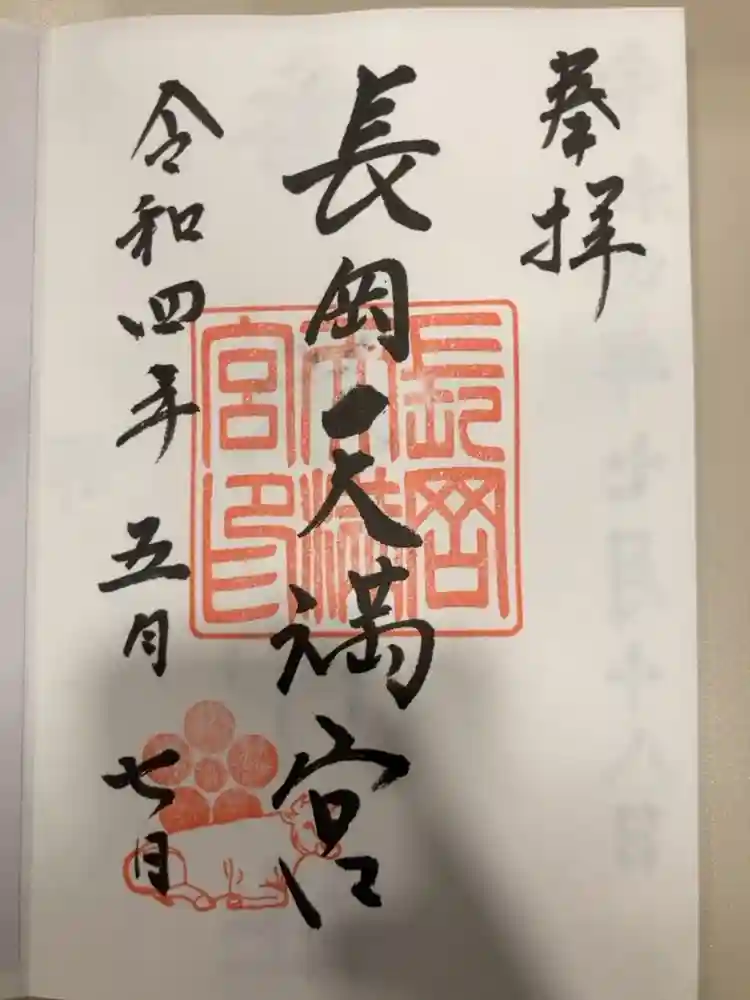 奉拝
長岡天満宮
長岡
天満
宮印
令和四年五月七日